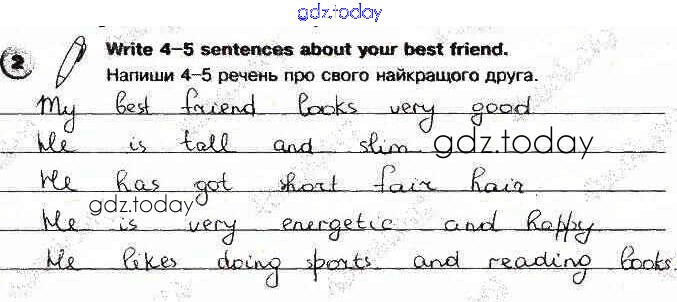 gdz.today
2 Write 4–5 sentences about your best friend.
Напиши 4–5 речень про свого найкращого друга.
My best friend looks very good
He is tall and slim gdz.today
He has got short fair hair.
gdz.today
He is very energetic and happy
He likes doing sports and reading books.